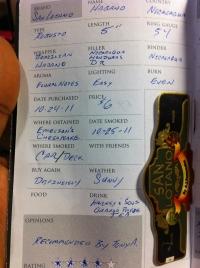 BRAND NAME COUNTRY
San Lotano Habano Nicaragua
TYPE LENGTH RING GAUGE
Robusto 5" 54
WRAPPER FILLER BINDER
Brazilian Nicaragua Nicaragua
Habano Honduras
DR
AROMA LIGHTING BURN
Easy Even
DATE PURCHASED PRICE
10-24-11 $6
WHERE OBTAINED DATE SMOKED
Emerson's 10-25-11
Chesapeake
WHERE SMOKED WITH FRIENDS
Car/Deck
BUY AGAIN WEATHER
Definitely Sunny
FOOD DRINK
OPINIONS
Recommended By Tony A.
RATING
SAN LOTANO